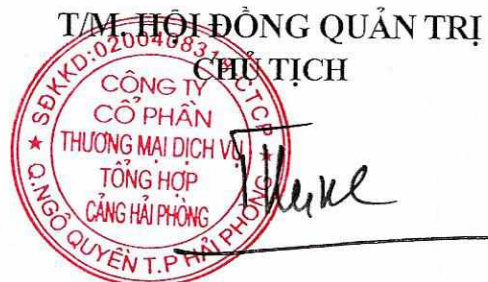 T/M. HỘI ĐỒNG QUẢN TRỊ
CHỦ TỊCH
SĐKKD:0200408319-CTCP
CÔNG TY
CỔ PHẦN
THƯƠNG MẠI DỊCH VỤ
TỔNG HỢP
CẢNG HẢI PHÒNG
Q.NGÔ QUYỀN T.P HẢI PHÒNG